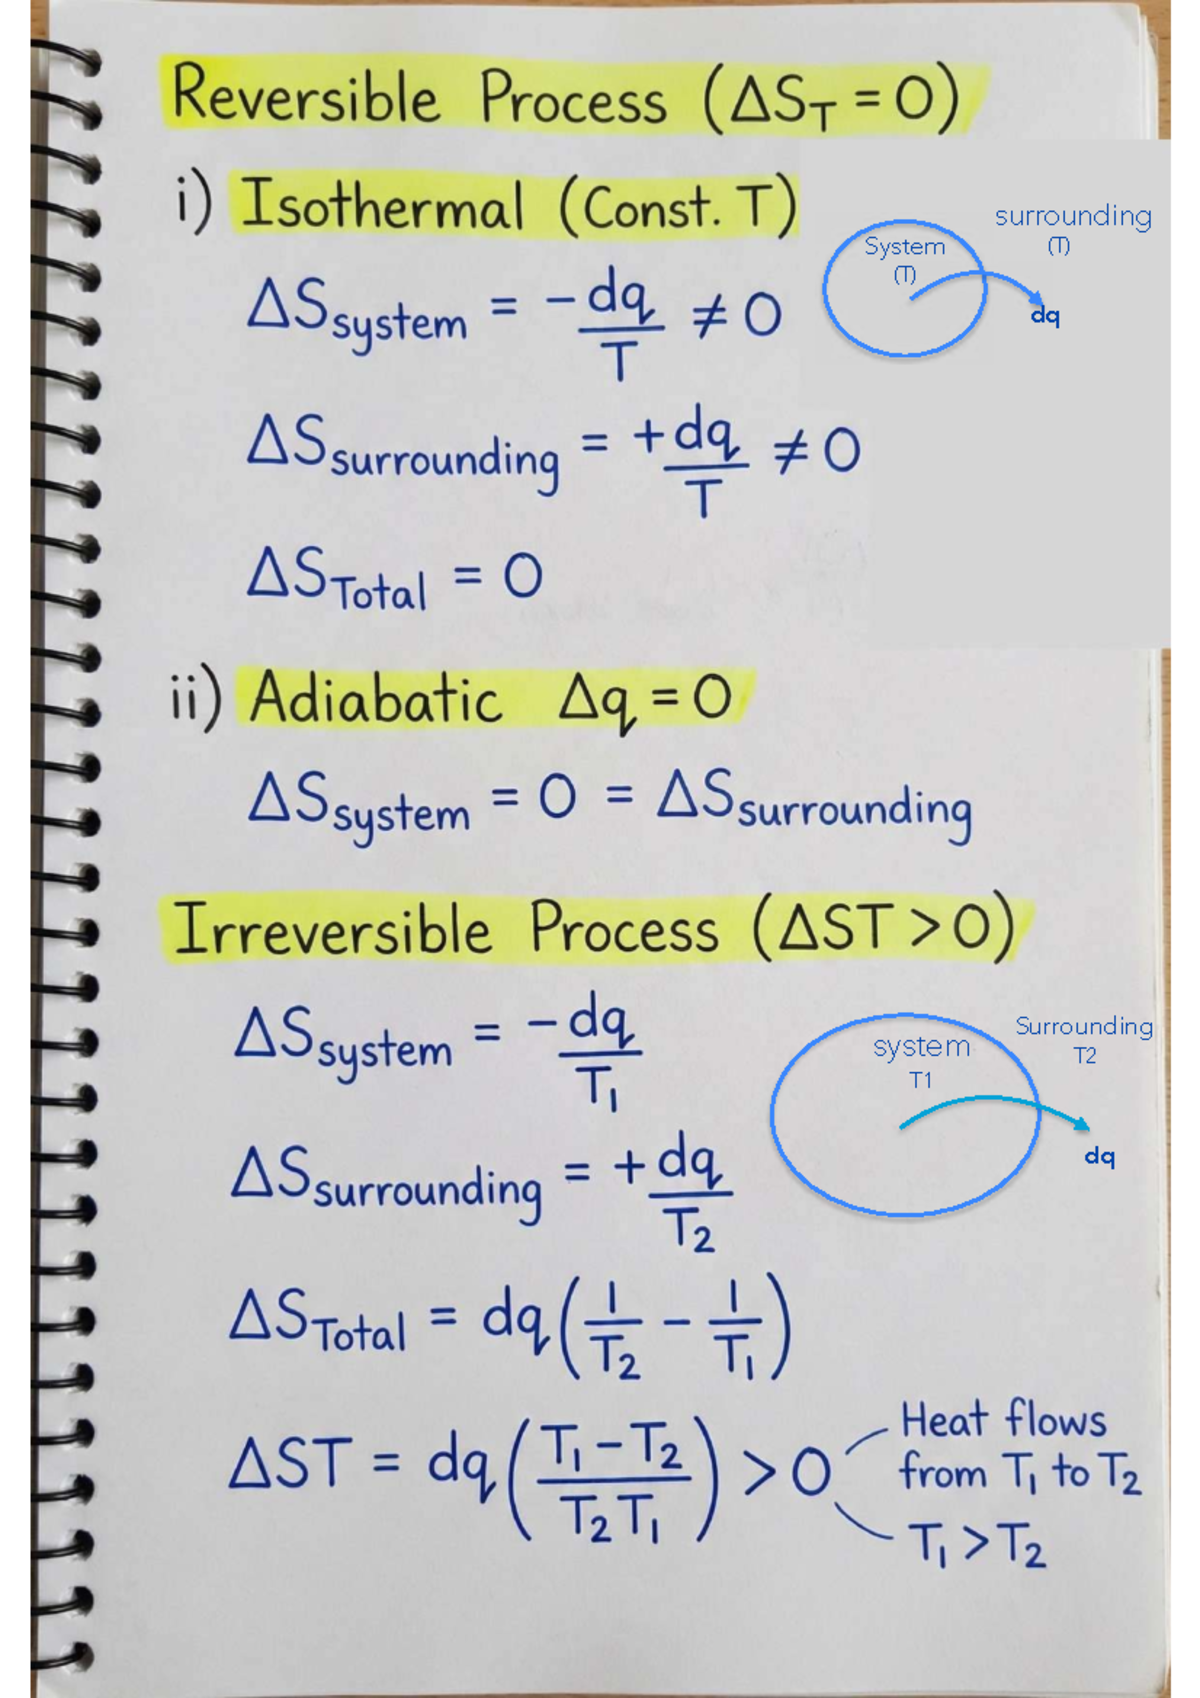 Reversible Process (ΔS_T = 0)
i) Isothermal (Const. T)
System
(T)
surrounding
(T)
dq
ΔS_system = -dq/T ≠ 0
ΔS_surrounding = +dq/T ≠ 0
ΔS_Total = 0
ii) Adiabatic Δq = 0
ΔS_system = 0 = ΔS_surrounding
Irreversible Process (ΔST > 0)
system
T1
Surrounding
T2
dq
ΔS_system = -dq/T₁
ΔS_surrounding = +dq/T₂
ΔS_Total = dq(1/T₂ - 1/T₁)
ΔST = dq((T₁ - T₂)/(T₂ T₁)) > 0
Heat flows
from T₁ to T₂
T₁ > T₂